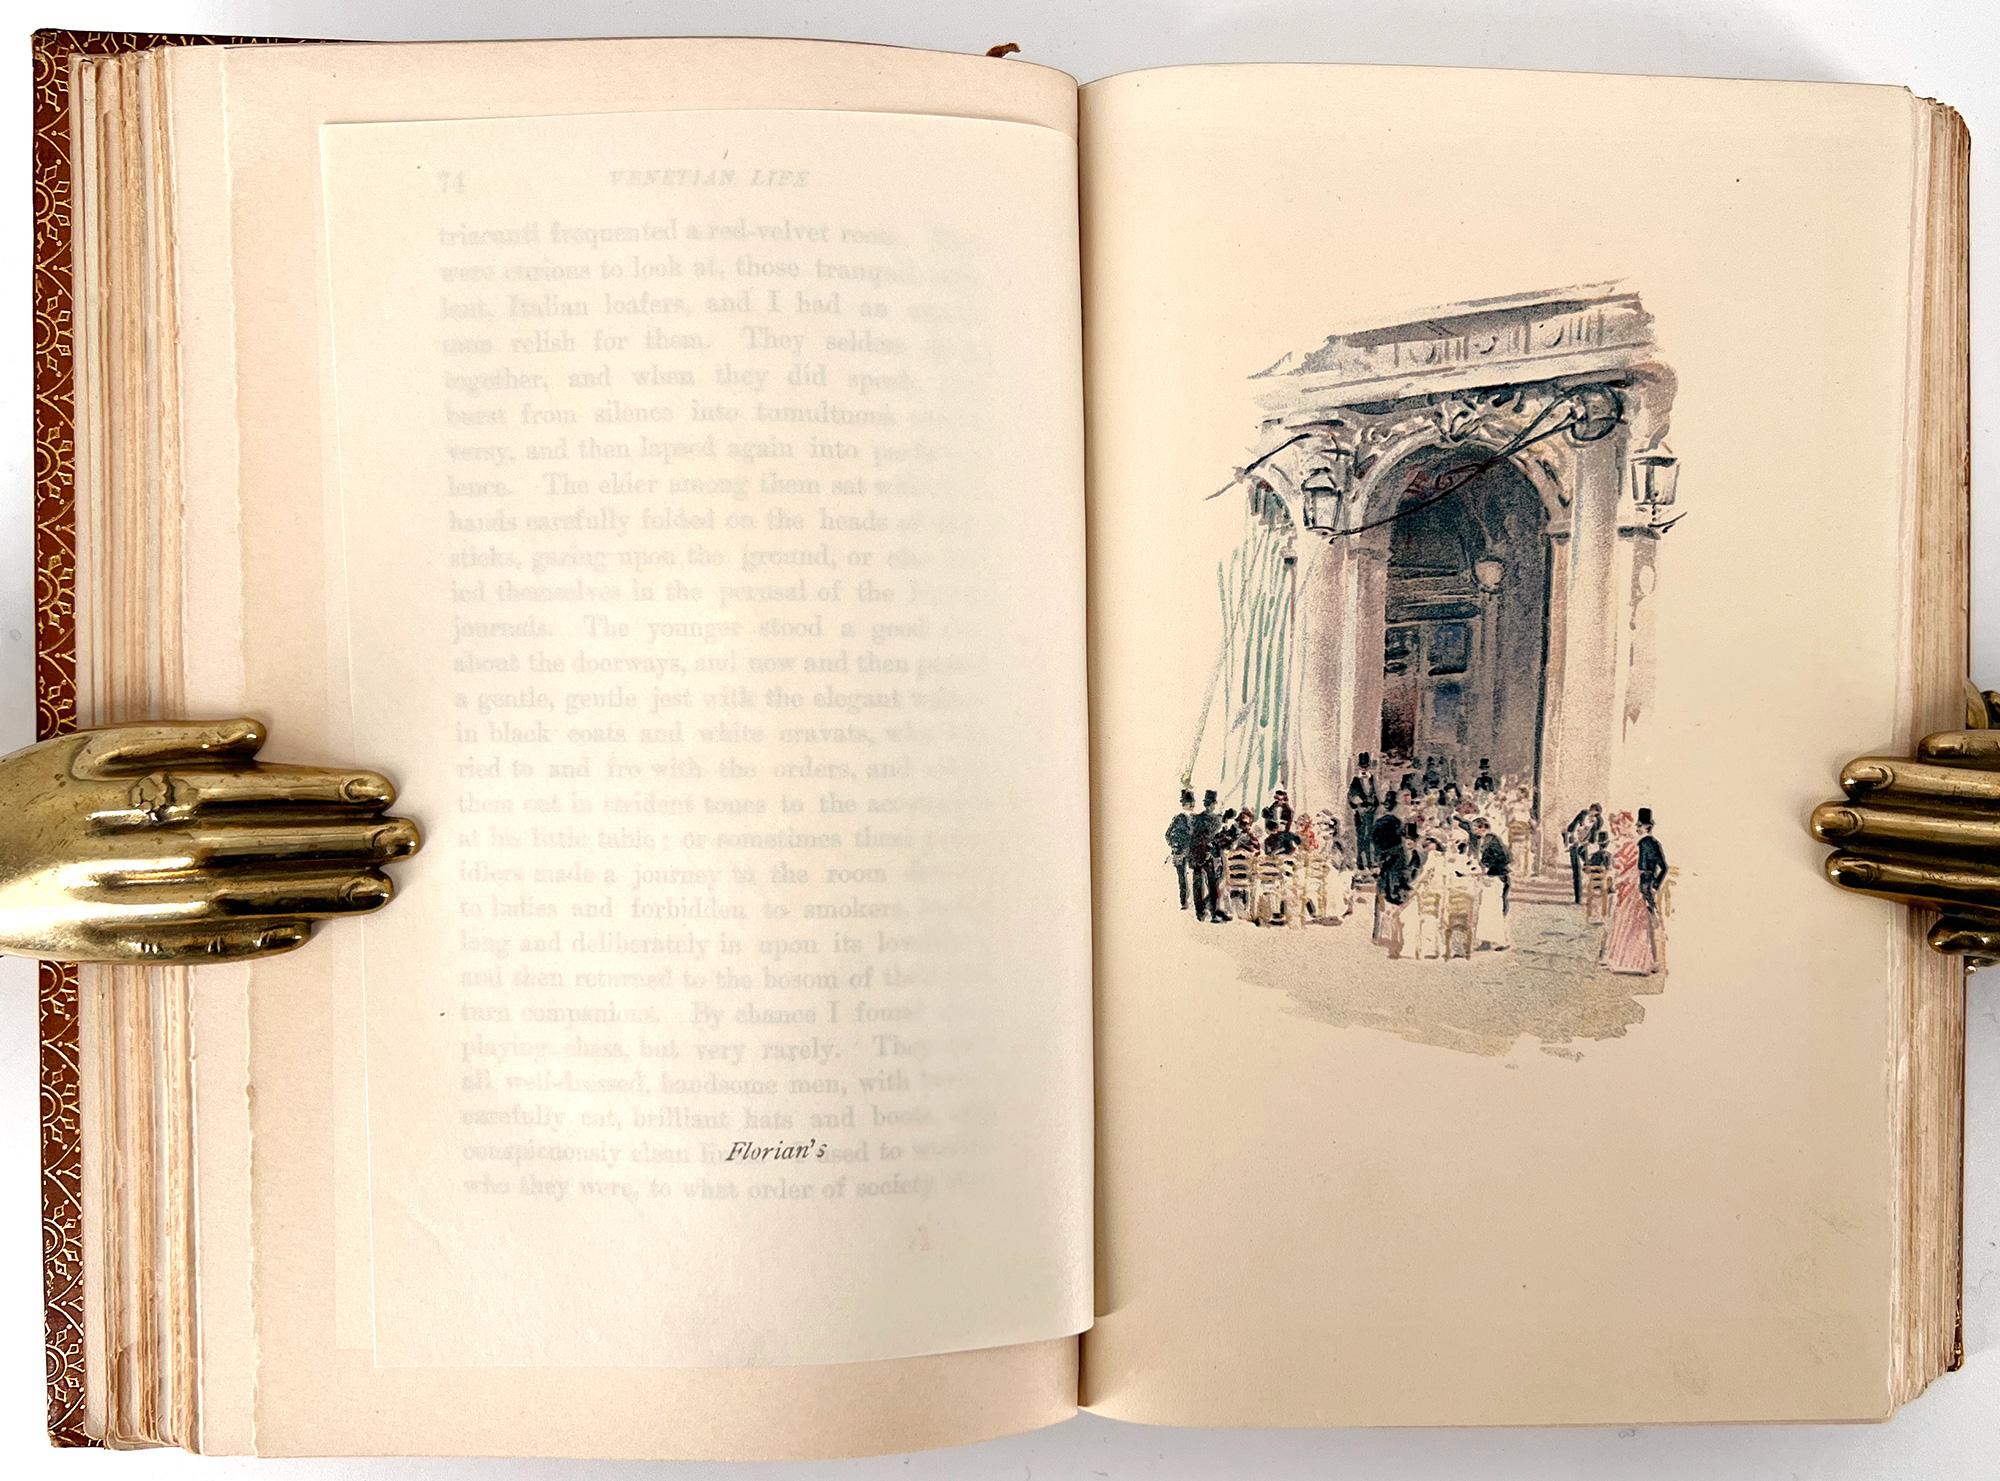 74 VENETIAN LIFE
triacanti frequented a red-velvet room.
were curious to look at, those tranquil,
lent, Italian loafers, and I had an
mon relish for them. They seldom
together, and when they did speak,
burst from silence into tumultuous
versy, and then lapsed again into perfect
lence. The elder among them sat with
hands carefully folded on the heads of
sticks, gazing upon the ground, or
ied themselves in the perusal of the
journals. The younger stood a good
about the doorways, and now and then
a gentle, gentle jest with the elegant
in black coats and white cravats, who
ried to and fro with the orders, and
them out in strident tones to the
at his little table; or sometimes these
idlers made a journey to the room
to ladies and forbidden to smokers,
long and deliberately in upon its
and then returned to the bosom of
turn companions. By chance I found
playing chess, but very rarely. They
all well-dressed, handsome men, with
carefully cut, brilliant hats and boots,
conspicuously clean linen. I used to
who they were, to what order of society
Florian's